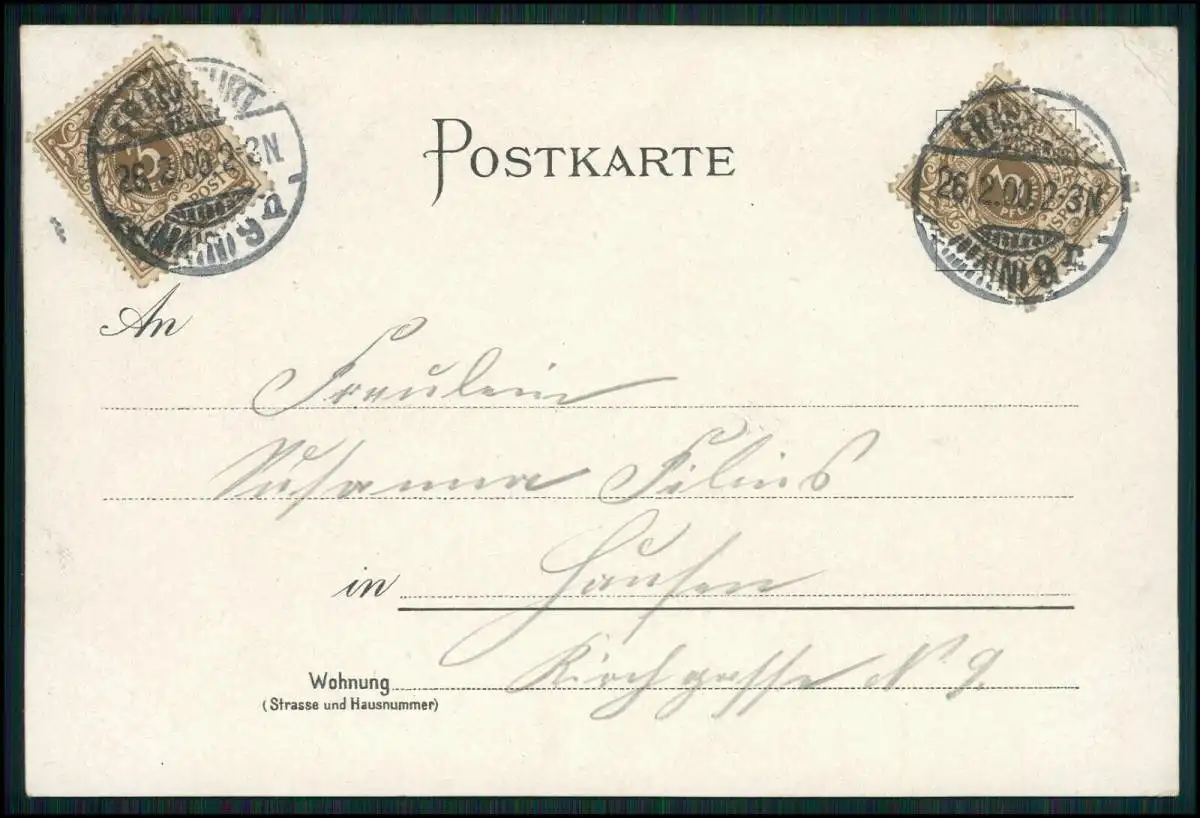 FRANKFURT
(MAIN) 9 n
26.2.00.2-3N
3
POSTKARTE
26.2.00.2-3N
(MAIN) 9 n
An
Fräulein
Susanna Filius
in Hausen
Wohnung Kirchgasse N° 9.
(Strasse und Hausnummer)